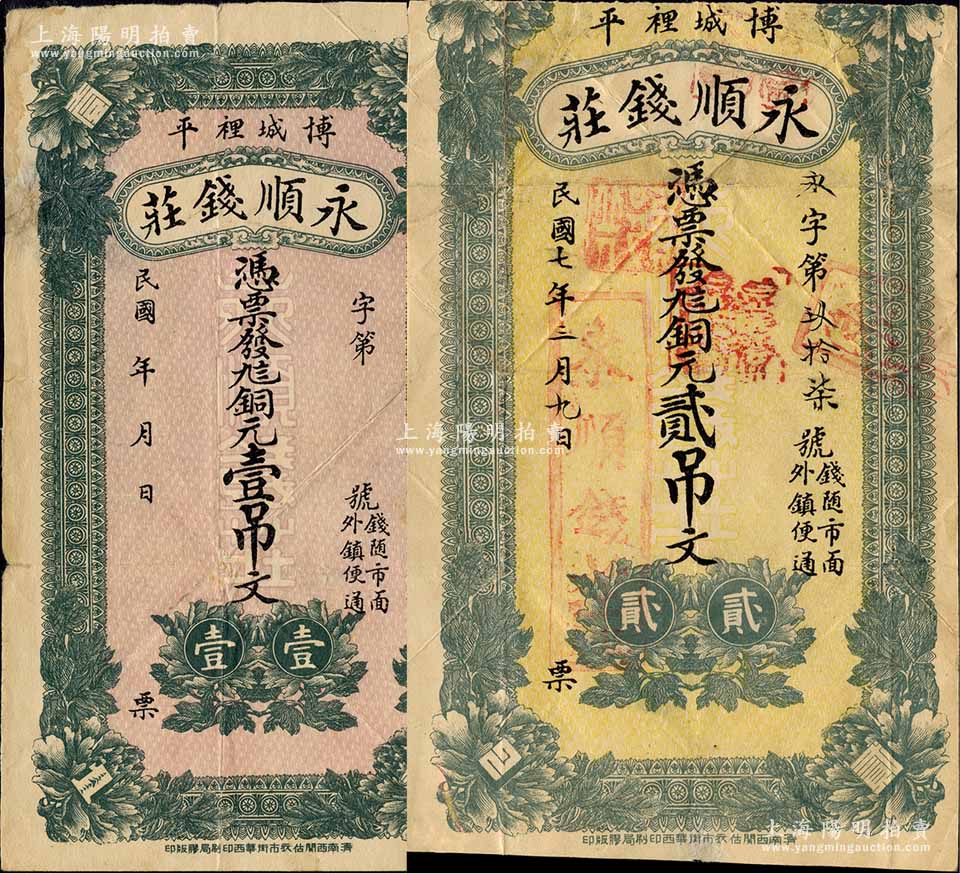 上海陽明拍賣
www.yangmingauction.com
博城裡平
永順錢莊
字第
號
錢随市面
外鎮便通
憑票發九底銅元壹吊文
民國 年 月 日
票
壹 壹
濟南西關估衣市街華西印刷局膠版印
博城裡平
永順錢莊
永字第玖拾柒號
錢随市面
外鎮便通
憑票發九底銅元貳吊文
民國七年三月九日
票
貳 貳
永順錢莊
濟南西關估衣市街華西印刷局膠版印
上海陽明拍賣
www.yangmingauction.com
上海陽明拍賣
www.yangmingauction.com